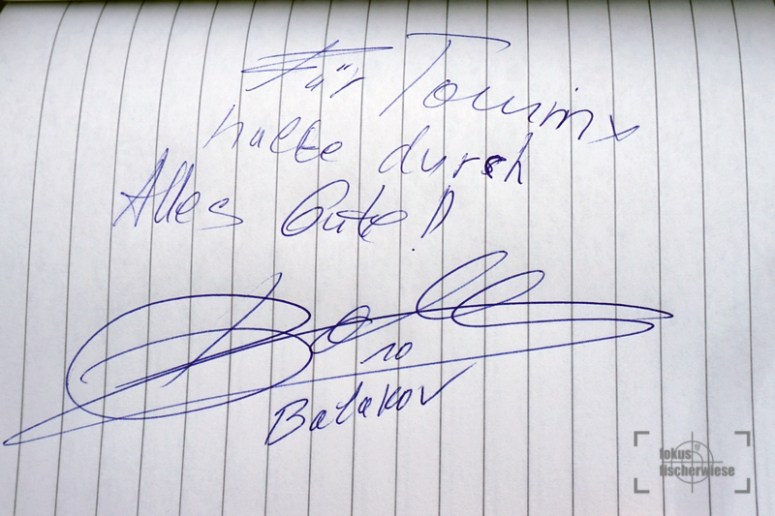 Für Tommy
halte durch
Alles Gute!
10
Balakov
fokus
fischerwiese